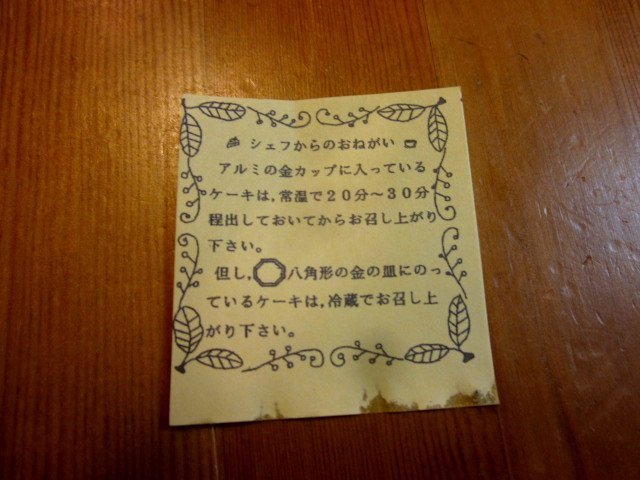 シェフからのおねがい
アルミの金カップに入っている
ケーキは,常温で20分～30分
程出しておいてからお召し上がり
下さい。
但し,八角形の金の皿にのっ
ているケーキは,冷蔵でお召し上
がり下さい。